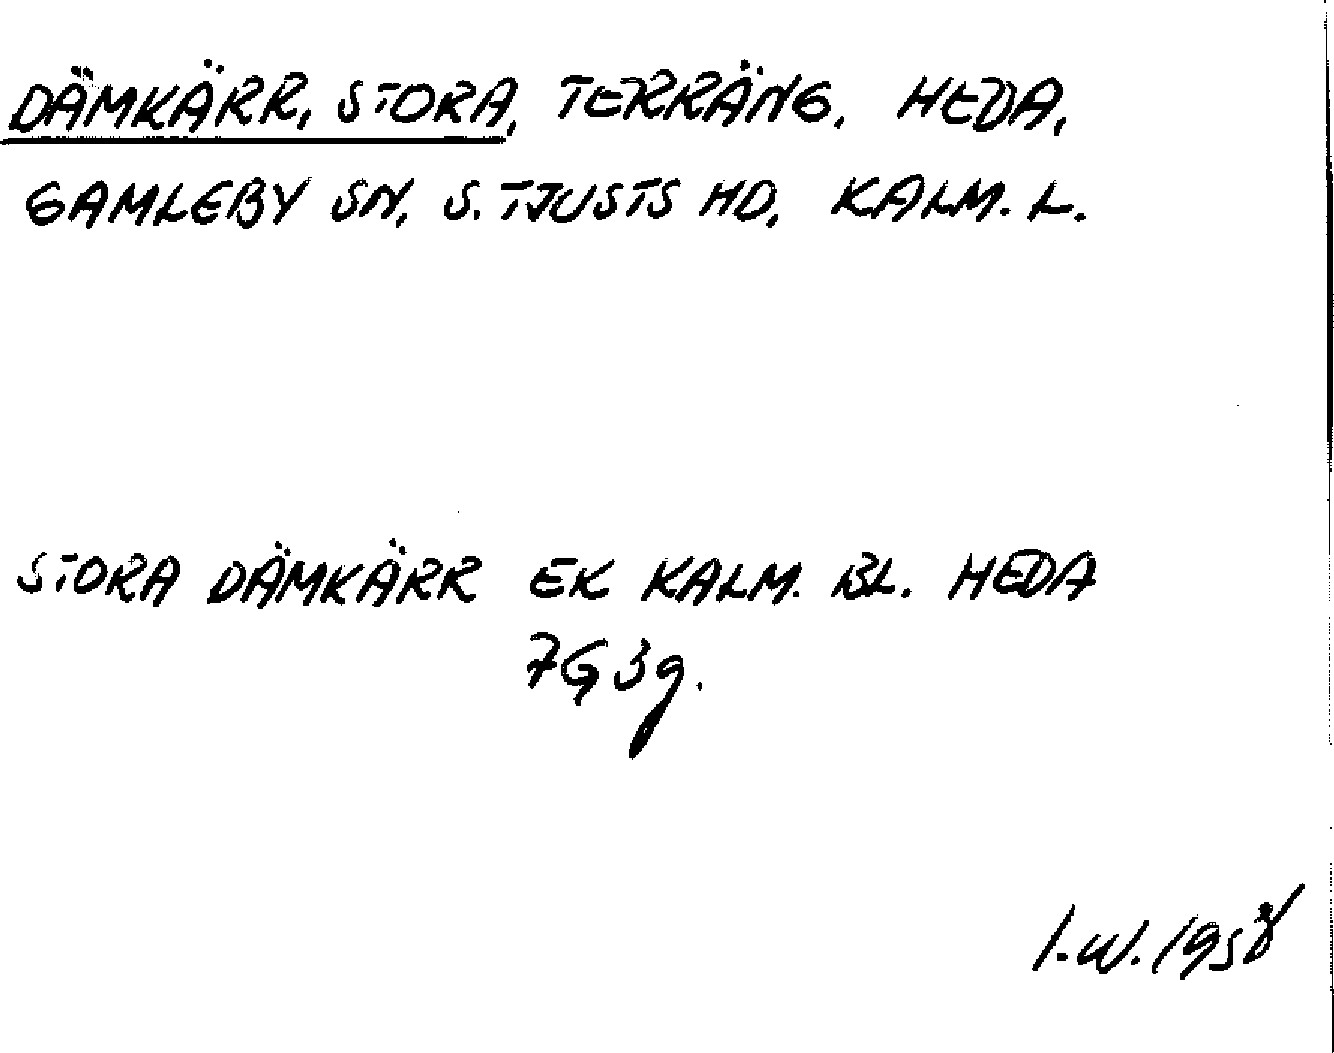 DÄMKÄRR, STORA, TERRÄNG. HEDA,
GAMLEBY SN, S. TJUSTS HD, KALM. L.
STORA DÄMKÄRR EK KALM. BL. HEDA
7G 3g.
I.W. 1958